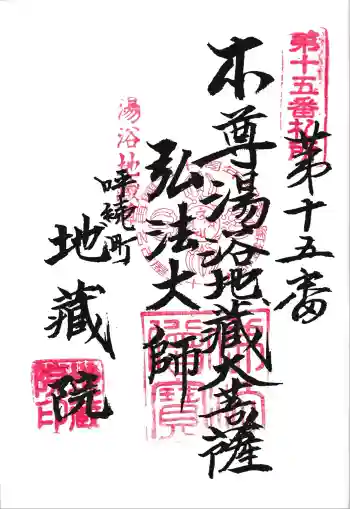 第十五番札所
第十五番
本尊湯浴地蔵大菩薩
弘法大師
湯浴地蔵
呼続町
地蔵院